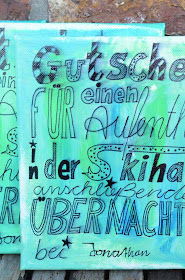 Gutsche
FÜR einen
Aufenth
in der Skiha
anschließend
ÜBERNACHT
bei Jonathan